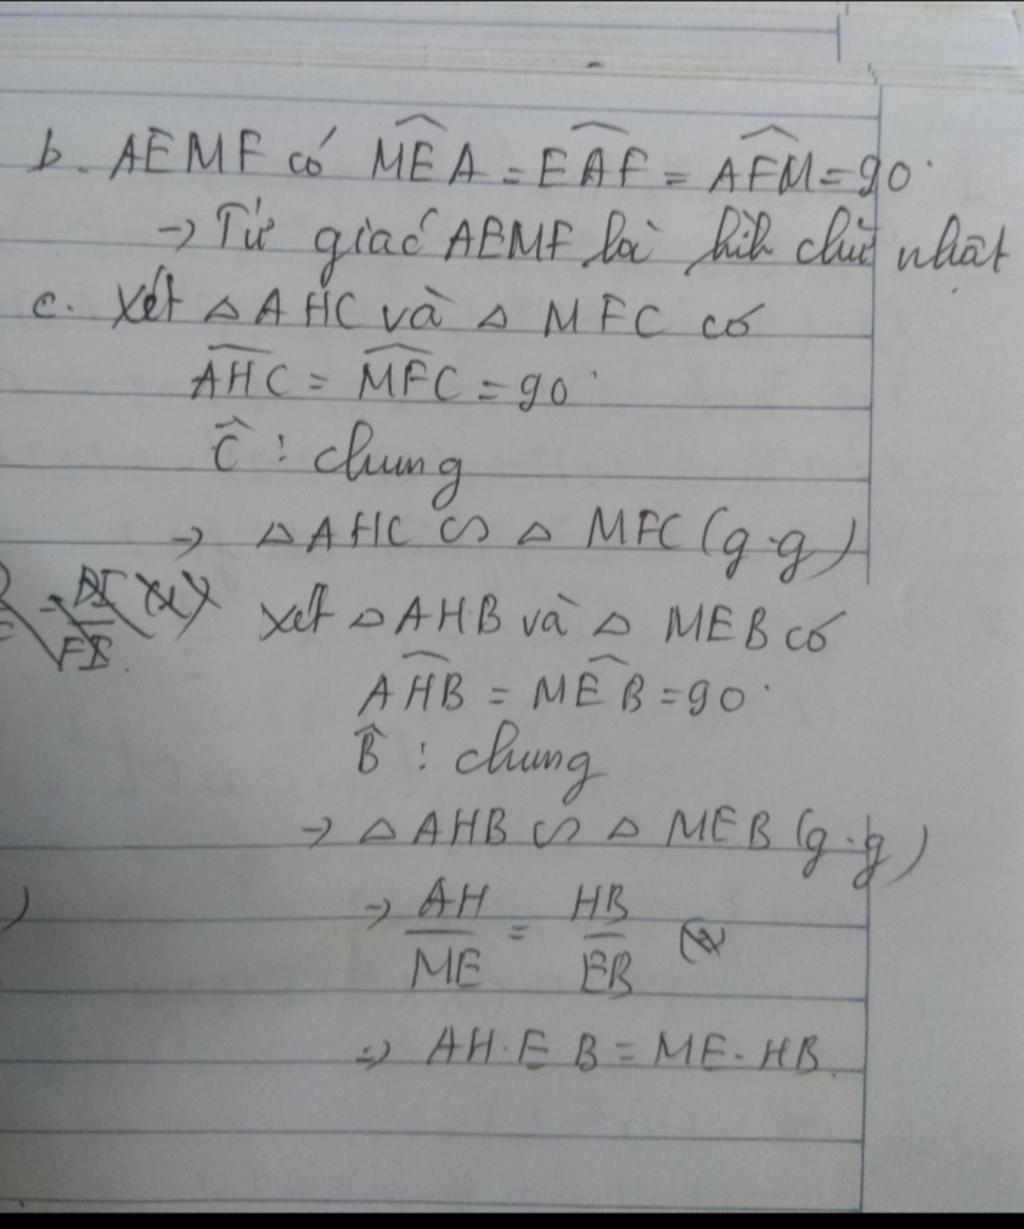 b. AEMF có $\widehat{MEA} = \widehat{EAF} = \widehat{AFM} = 90^\circ$
→ Tứ giác AEMF là hìh chữ nhât
c. Xét △ AHC và △ MFC có
$\widehat{AHC} = \widehat{MFC} = 90^\circ$
$\widehat{C}$ : chung
→ △ AHC ∽ △ MFC (g.g)
Xét △ AHB và △ MEB có
$\widehat{AHB} = \widehat{MEB} = 90^\circ$
$\widehat{B}$ : chung
→ △ AHB ∽ △ MEB (g.g)
→ $\frac{AH}{ME} = \frac{HB}{EB}$
=> AH.EB = ME.HB